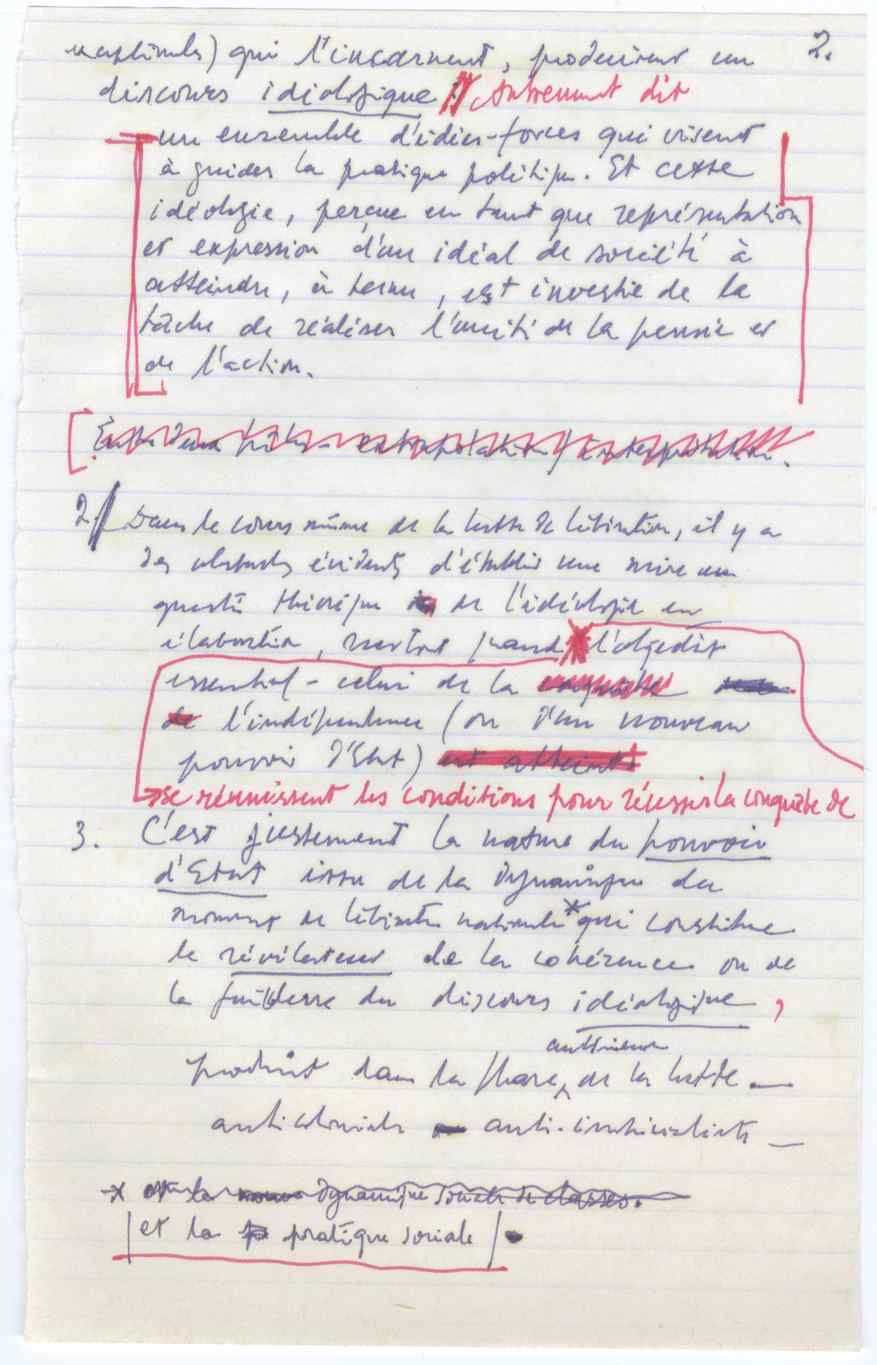 2.
qui l'incarnent, produisent un
discours idéologique. Autrement dit
un ensemble d'idées-forces qui visent
à guider la pratique politique. Et cette
idéologie, perçue en tant que représentation
et expression d'un idéal de société à
atteindre, à terme, est investie de la
tâche de réaliser l'unité de la pensée et
de l'action.
2/ Dans le cours même de la lutte de libération, il y a
des obstacles évidents d'établir une mise en
théorique de l'idéologie en
élaboration, surtout quand l'objectif
essentiel - celui de la conquête
de l'indépendance (ou d'un nouveau
pouvoir d'Etat) est atteint
se réunissent les conditions pour réussir la conquête de
3. C'est justement la nature du pouvoir
d'Etat issu de la dynamique du
mouvement de libération nationale* qui constitue
le révélateur de la cohérence ou de
la faiblesse du discours idéologique,
antérieure
produit dans la phase de la lutte
anticoloniale - anti-impérialiste
* et la dynamique sociale de classes.
et la pratique sociale